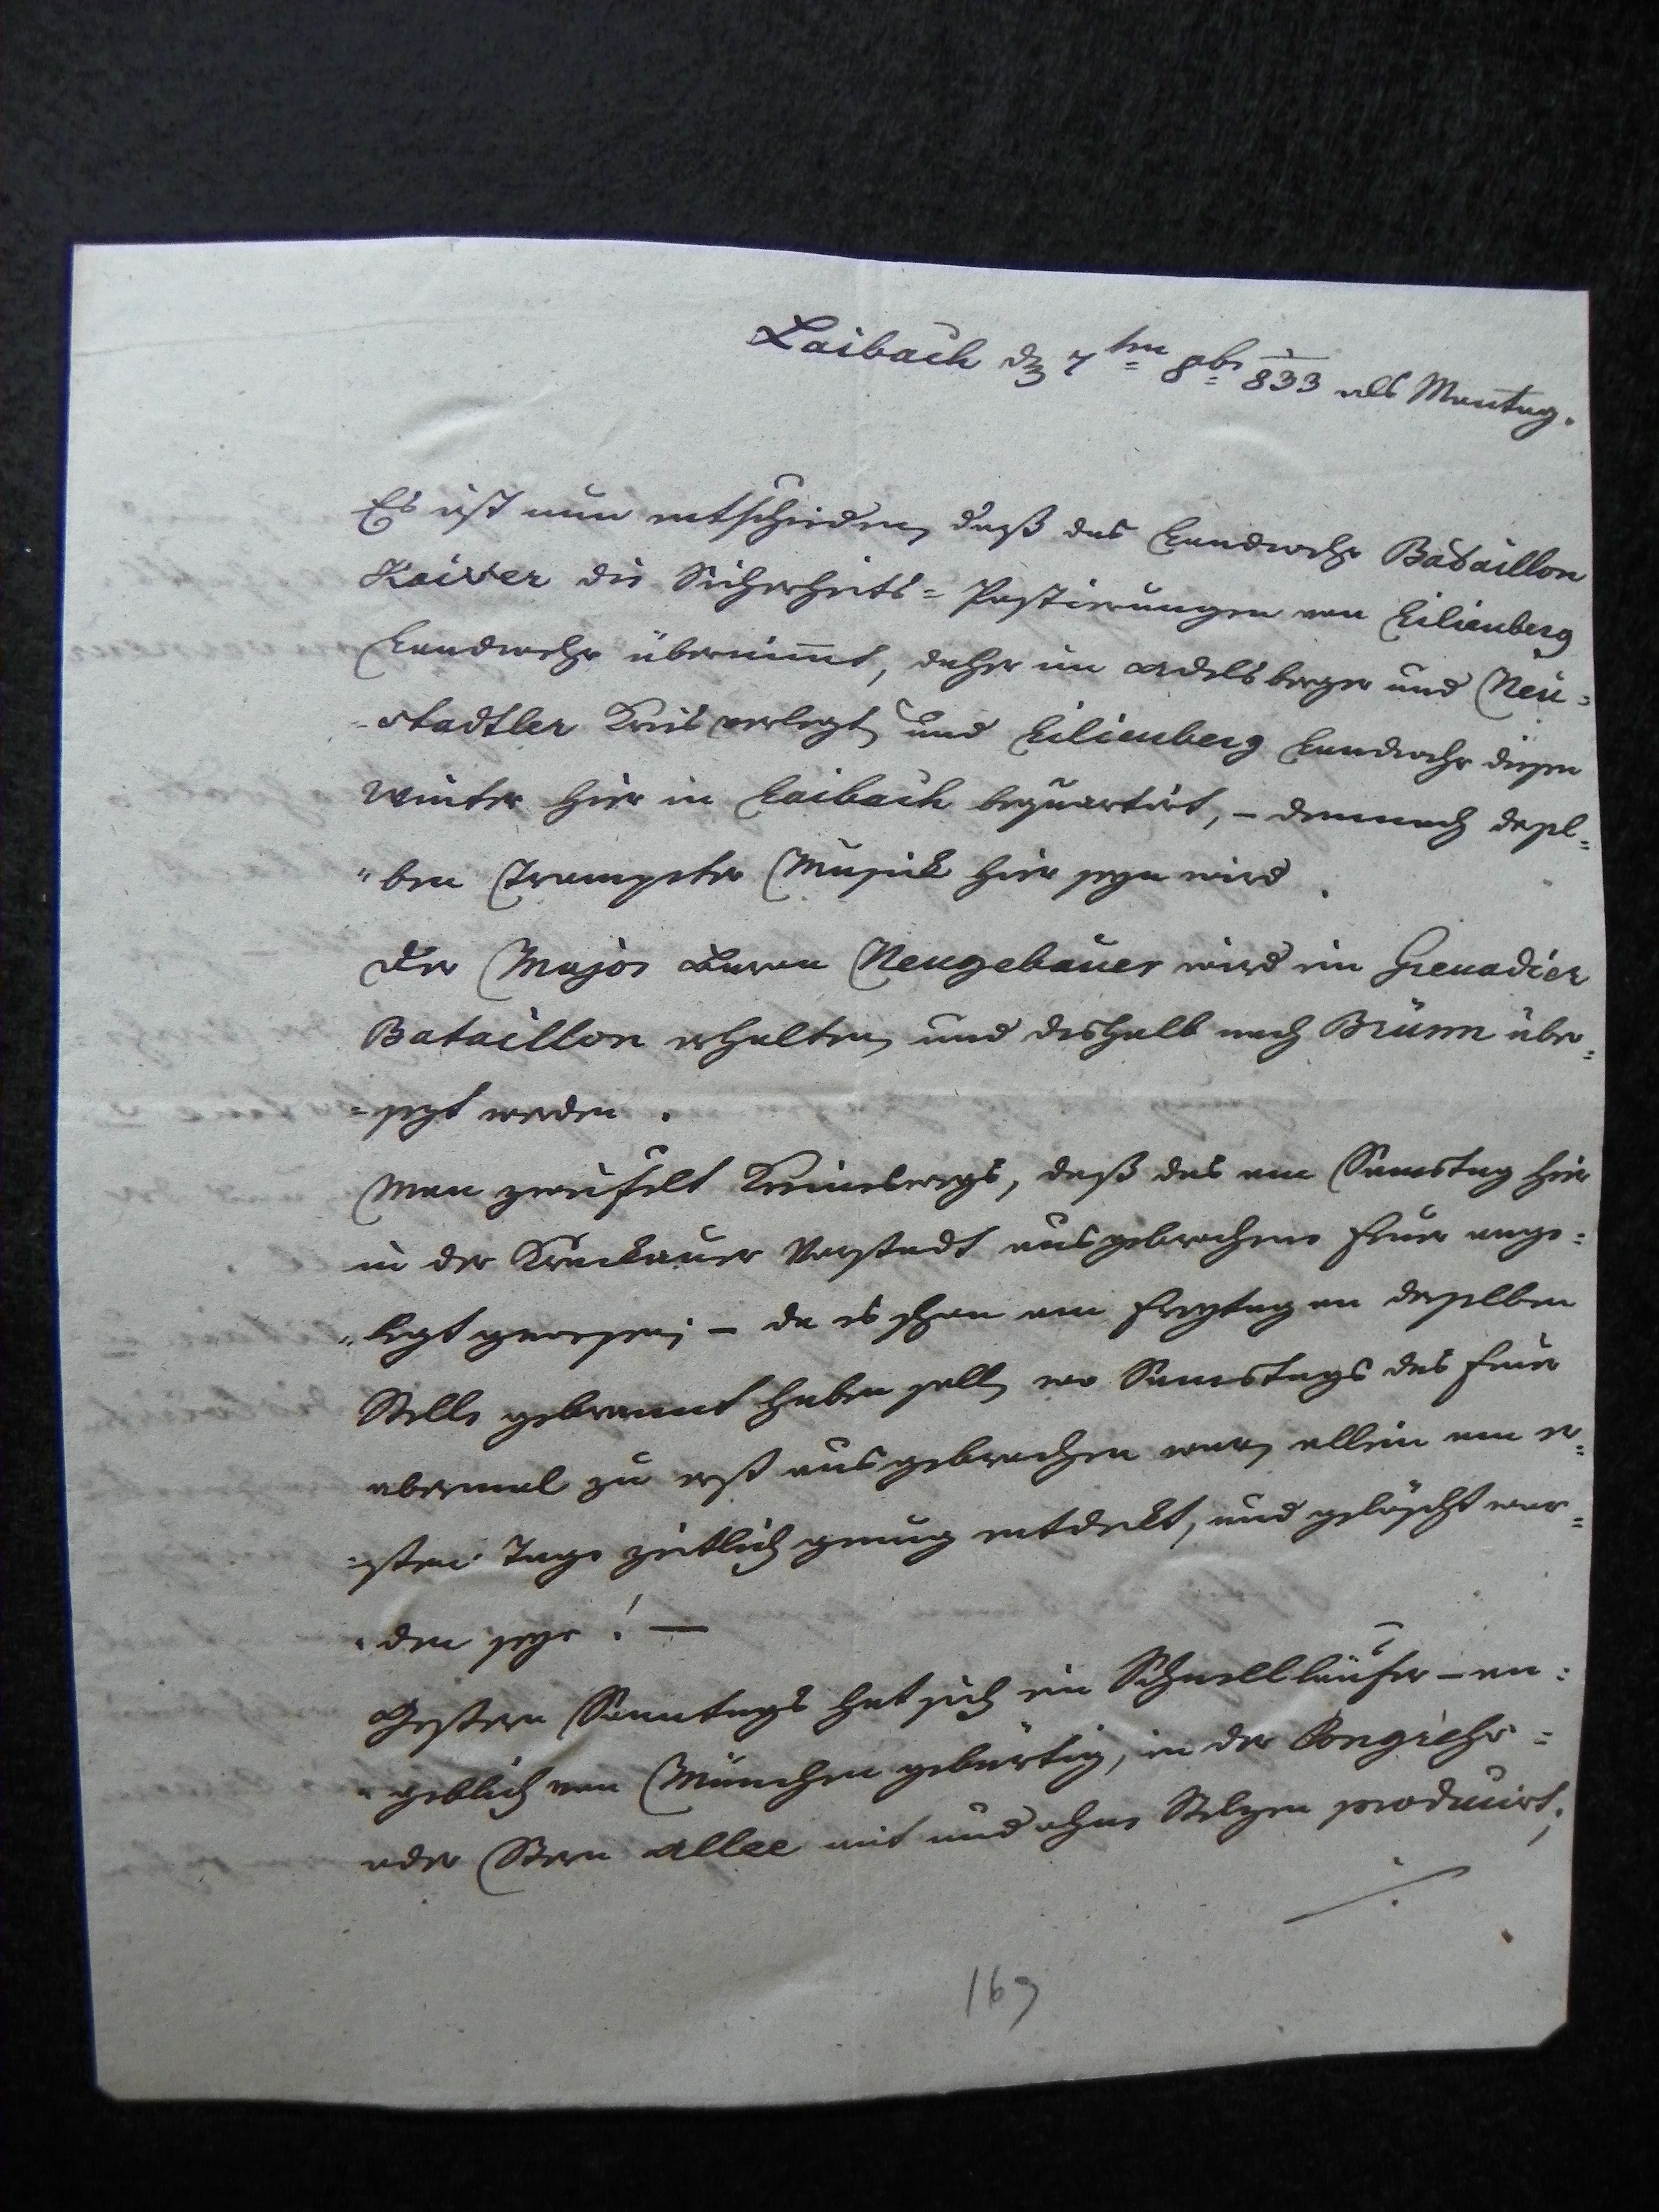 Laibach den 7ten 8b. 833 als Montag.
Es ist nun entschieden, daß das Landwehr Bataillon
Kaiser die Sicherheits=Postierungen von Lilienberg
Landwehr übernimmt, daher im Adelsberger und Neu=
=stadtler Kreis verlegt, und Lilienberg Landwehr diesen
Winter hier in Laibach bequartirt, – demnach dessel=
"ben Trompeter Musick hier seyn wird.
Der Major Baron Neugebauer wird ein Grenadier
Bataillon erhalten, und deshalb nach Brünn über=
=sezt werden.
Man zweifelt Keineswegs, daß das am Samstag hier
in der Krackauer Vorstadt ausgebrochene Feuer ange=
"legt gewesen; – da es schon am Freytag an derselben
Stelle gebrannt haben soll, wo Samstags das Feuer
abermal zu erst ausgebrochen war, allein am er=
=sten Tage zeitlich genug entdekt, und gelöscht wor=
"den seye! —
Gestern Sonntags hat sich ein Schnellläufer – an=
"geblich von München gebürtig, in der
oder Stern Allee mit und ohne Stelzen producirt;
./.
169